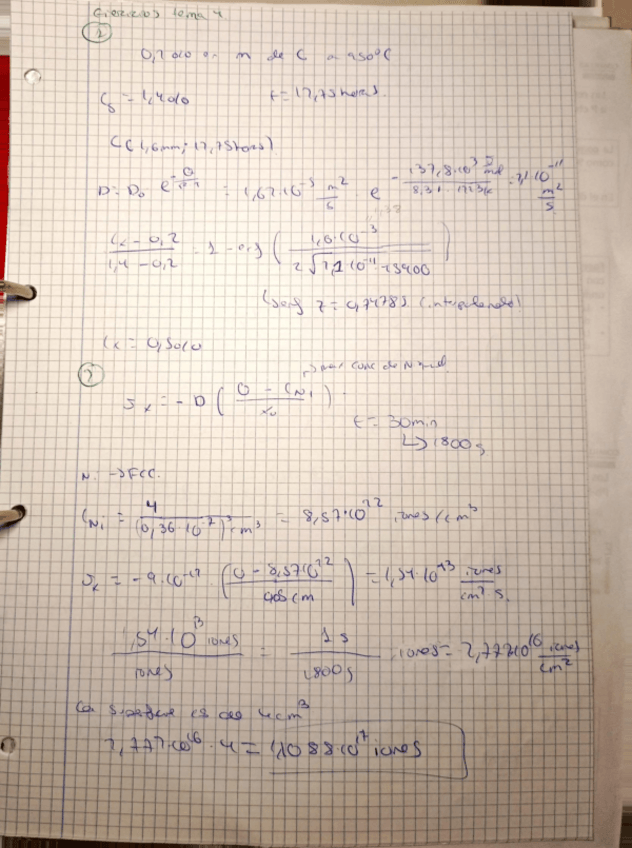 Ejercicios tema 4
1
0,2 % en m de C a 950°C
Cs = 1,4 % t = 17,75 horas.
C (1,6mm; 17,75 horas)
D = D₀ e = 1,62·10⁻⁵ m²/s · e = 2,1·10⁻¹¹ m²/s
Cx - 0,2 / 1,4 - 0,2 = 1 - erf ( 1,6·10⁻³ / 2√2,1·10⁻¹¹ ·63900 )
z = 0,74785 (interpolando)
Cx = 0,50 %
2
conc de Ni
Jx = - D ( 0 - CNi / x₀ )
t = 30min
↳ 1800 s
Ni → FCC.
CNi = 4 / (0,36·10⁻⁷)³ cm³ = 8,57·10²² iones/cm³
Jx = -9·10⁻¹² ( 0 - 8,57·10²² / 0,05 cm ) = 1,54·10¹³ iones / cm² s.
1,54·10¹³ iones / iones = 1 s / 1800 s iones = 2,772·10¹⁶ iones/cm²
La es de 4cm
2,772·10¹⁶ · 4 = 1,1088·10¹⁷ iones